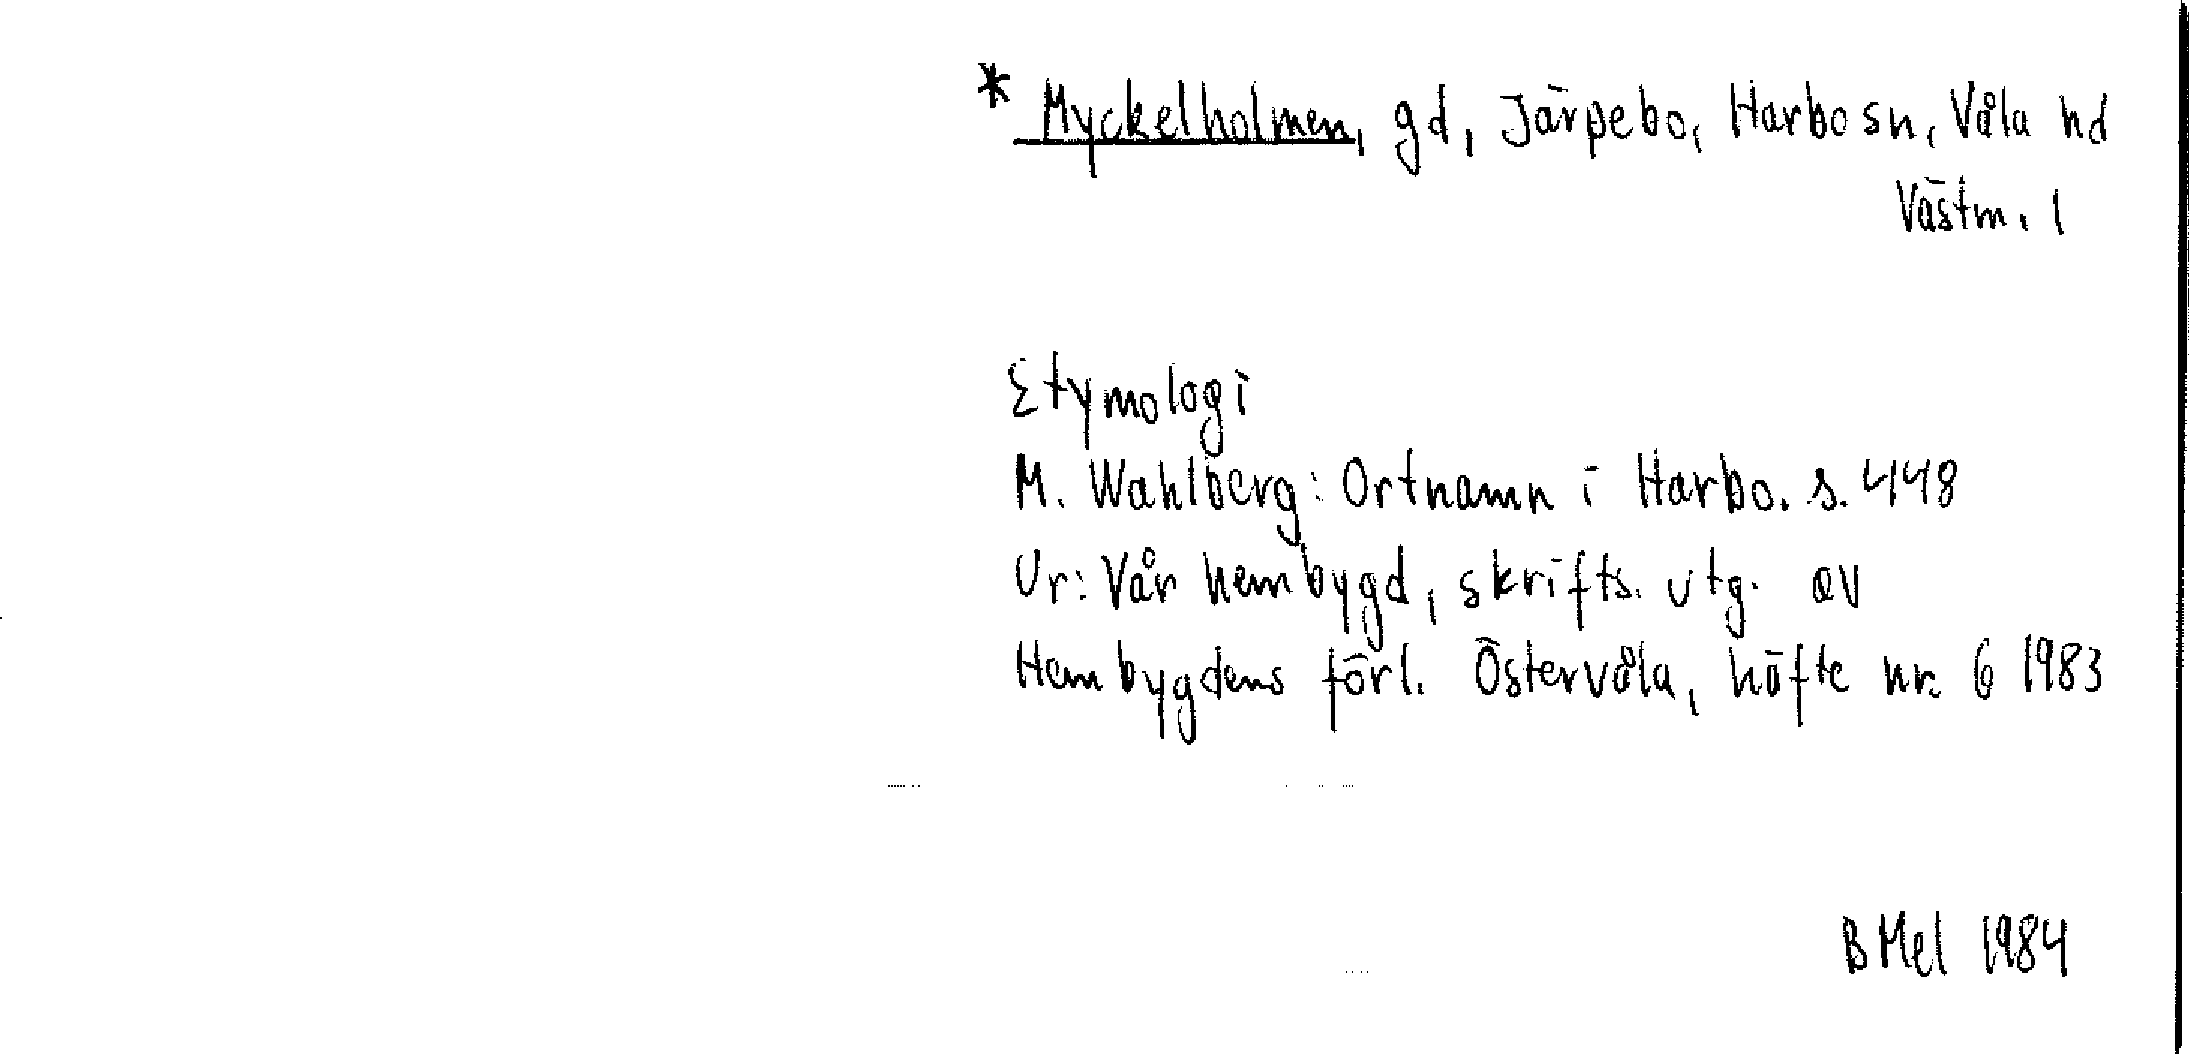 * Myckelholmen, gd, Järpebo, Harbo sn, Våla hd
Västm. l
Etymologi
M. Wahlberg: Ortnamn i Harbo. s. 448
Ur: Vår hembygd, skrifts. utg. av
Hembygdens förl. Östervåla, häfte nr. 6 1983
B Mel 1984